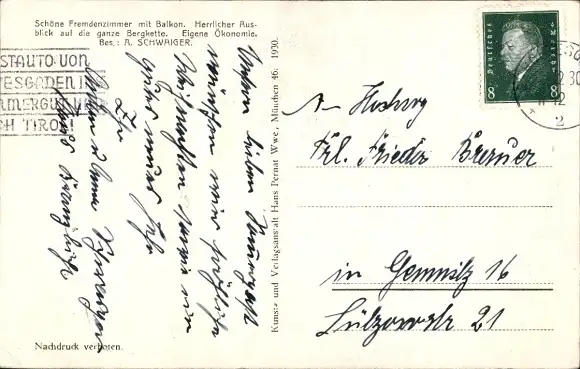 Schöne Fremdenzimmer mit Balkon. Herrlicher Aus-
blick auf die ganze Bergkette. Eigene Ökonomie.
Bes.: A. SCHWAIGER.
STAUTO VON
ESGADEN IN
MERGUT UN
H TIROL!
Unsern lieben
wünschen wir fröhliche
Weihnachten sowie ein
gutes neues Jahr
Ihr
Kunst- und Verlagsanstalt Hans Pernat Wwe., München 46. 1930.
Deutsches Reich
8 8
30
12
2
Frl. Frieda Brenner
in Gemnitz 16
Lützowstr 21
Nachdruck verboten.